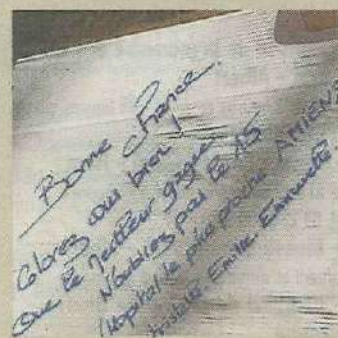 Bonne chance.
Colorez ou bien
Que le facteur gagne
N'oubliez pas le 15
Hopital le plus proche AMIENS
Emilie. Emmanuelle